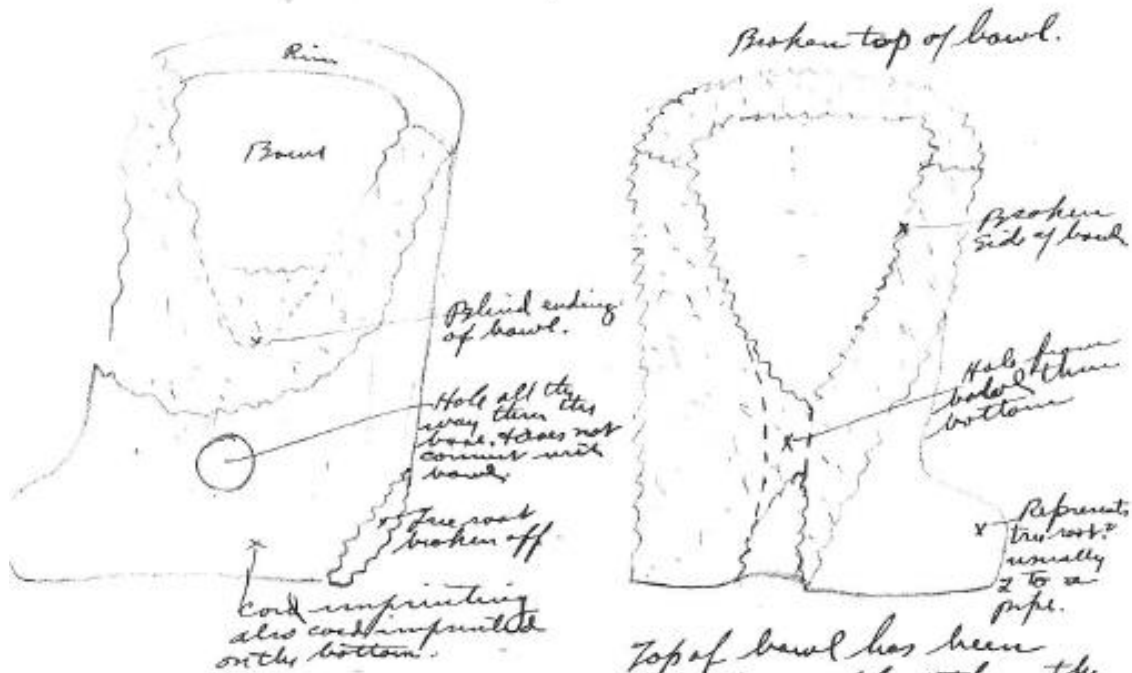 Rim
Bowl
Blind ending
of bowl.
Hole all the
way thru the
base. + does not
connect with
bowl.
Tree root
broken off
Cord imprinting
also cord imprinted
on the bottom.
Broken top of bowl.
Broken
side of bowl
Hole from
bowl thru
bottom
Represents
tree root?
usually
2 to a
pipe.
Top of bowl has been